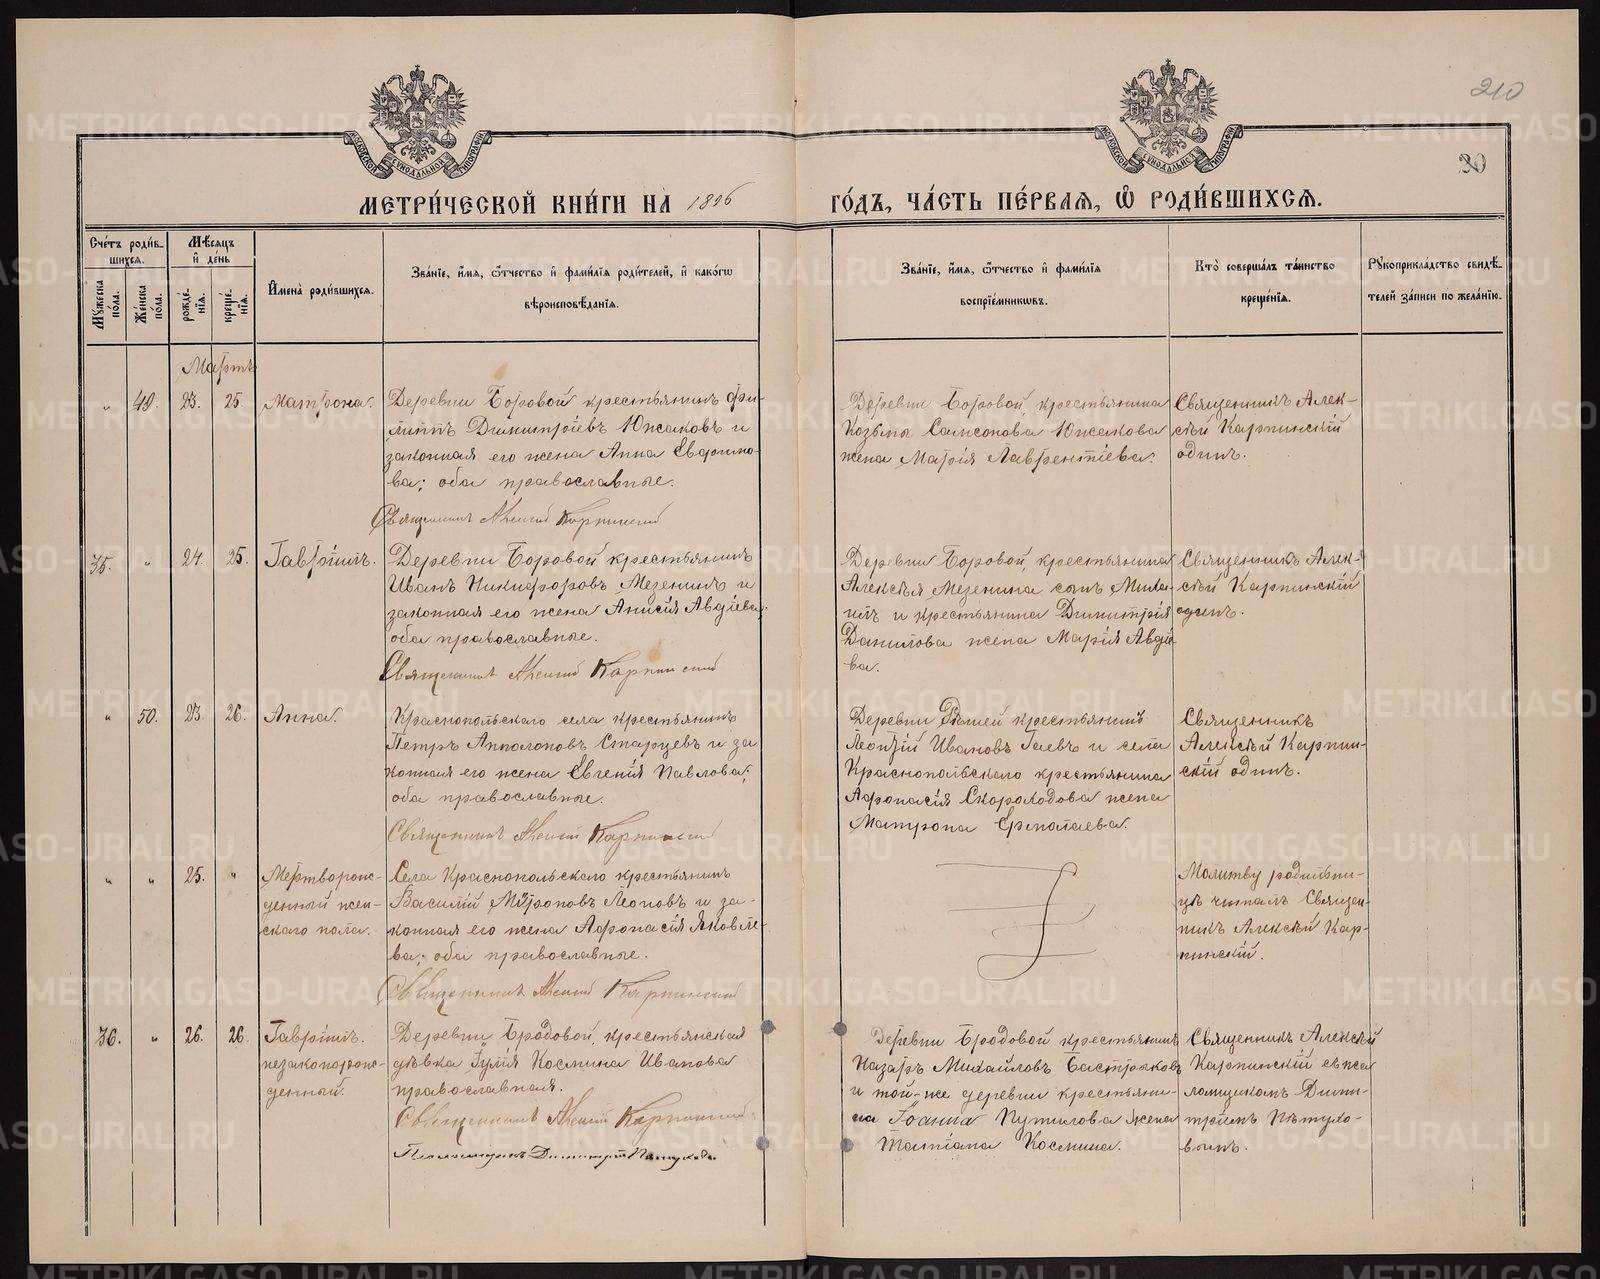 210
30
МЕТРИ́ЧЕСКОЙ КНИ́ГИ НА 1896 ГО́ДЪ, ЧА́СТЬ ПЕ́РВАѦ, Ѽ РОДИ́ВШИХСѦ.
Сче́тъ роди́в-
шихсѧ.
Мꙋжеска пола.
Же́нска пола.
Мѣ́сѧцъ
и҆ де́нь
рожде́-
нїѧ.
креще́-
нїѧ.
И҆мена̀ роди́вшихсѧ.
Зва́нїе, и҆́мѧ, ѻ҆́тчество и҆ фами́лїѧ роди́телей, и҆ како́гѡ
вѣроисповѣ́данїѧ.
Зва́нїе, и҆́мѧ, ѻ҆́тчество и҆ фами́лїѧ
воспрїе́мникѡвъ.
Кто̀ соверша́лъ та́инство
креще́нїѧ.
Рꙋкоприкла́дство свидѣ́-
телей за́писи по жела́нїю.
Мартъ
" 49. 23. 25 Матрона.
Деревни Боровой крестьянинъ Фи-
липпъ Димитріевъ Южаковъ и
законная его жена Анна
ва; оба православные.
Священникъ Алексій Карпинскій
Деревни Боровой, крестьянина
Козьмы Самсонова Южакова
жена Марія Лаврентіева.
Священникъ Алек-
сѣй Карпинскій
одинъ.
35. " 24. 25. Гавріилъ.
Деревни Боровой крестьянинъ
Иванъ Никифоровъ Мезенинъ и
законная его жена Анисія Авдіева;
оба православные.
Священникъ Алексій Карпинскій
Деревни Боровой, крестьянина
Алексѣя Мезенина сынъ Миха-
илъ и крестьянина Димитрія
Данилова жена Марія Авдіе
ва.
Священникъ Алек-
сѣй Карпинскій
одинъ.
" 50. 23. 26. Анна.
Краснопольскаго села крестьянинъ
Петръ Апполоновъ Старцевъ и за
конная его жена Евгенія Павлова;
оба православные.
Священникъ Алексій Карпинскій
Деревни крестьянинъ
Леонтій Ивановъ Гаевъ и села
Краснопольскаго крестьянина
Афонасія Скороходова жена
Матрона Ермолаева.
Священникъ
Алексѣй Карпин-
скій одинъ.
" " 25. " Мертворож-
денный жен-
скаго пола.
Села Краснопольскаго крестьянинъ
Василій Мѵроновъ Леоновъ и за-
конная его жена Афонасія Яковле-
ва; оба православные.
Священникъ Алексій Карпинскій
Молитву родильни-
цѣ читалъ Священ-
никъ Алексѣй Кар-
пинскій.
36. " 26. 26. Гавріилъ.
незаконорож-
денный.
Деревни Бродовой, крестьянская
дѣвка Іулія Космина Иванова
православная.
Священникъ Алексій Карпинскій
Псаломщикъ Димитрій Пѣтуховъ
Деревни Бродовой крестьянинъ
Назаръ Михайловъ Бастрыковъ
и той-же деревни крестьяни-
на Іоанна Путилова жена
Татіана Космина.
Священникъ Алексѣй
Карпинскій съ пса
ломщикомъ Дими-
тріемъ Пѣтухо-
вымъ.
METRIKI.GASO-URAL.RU